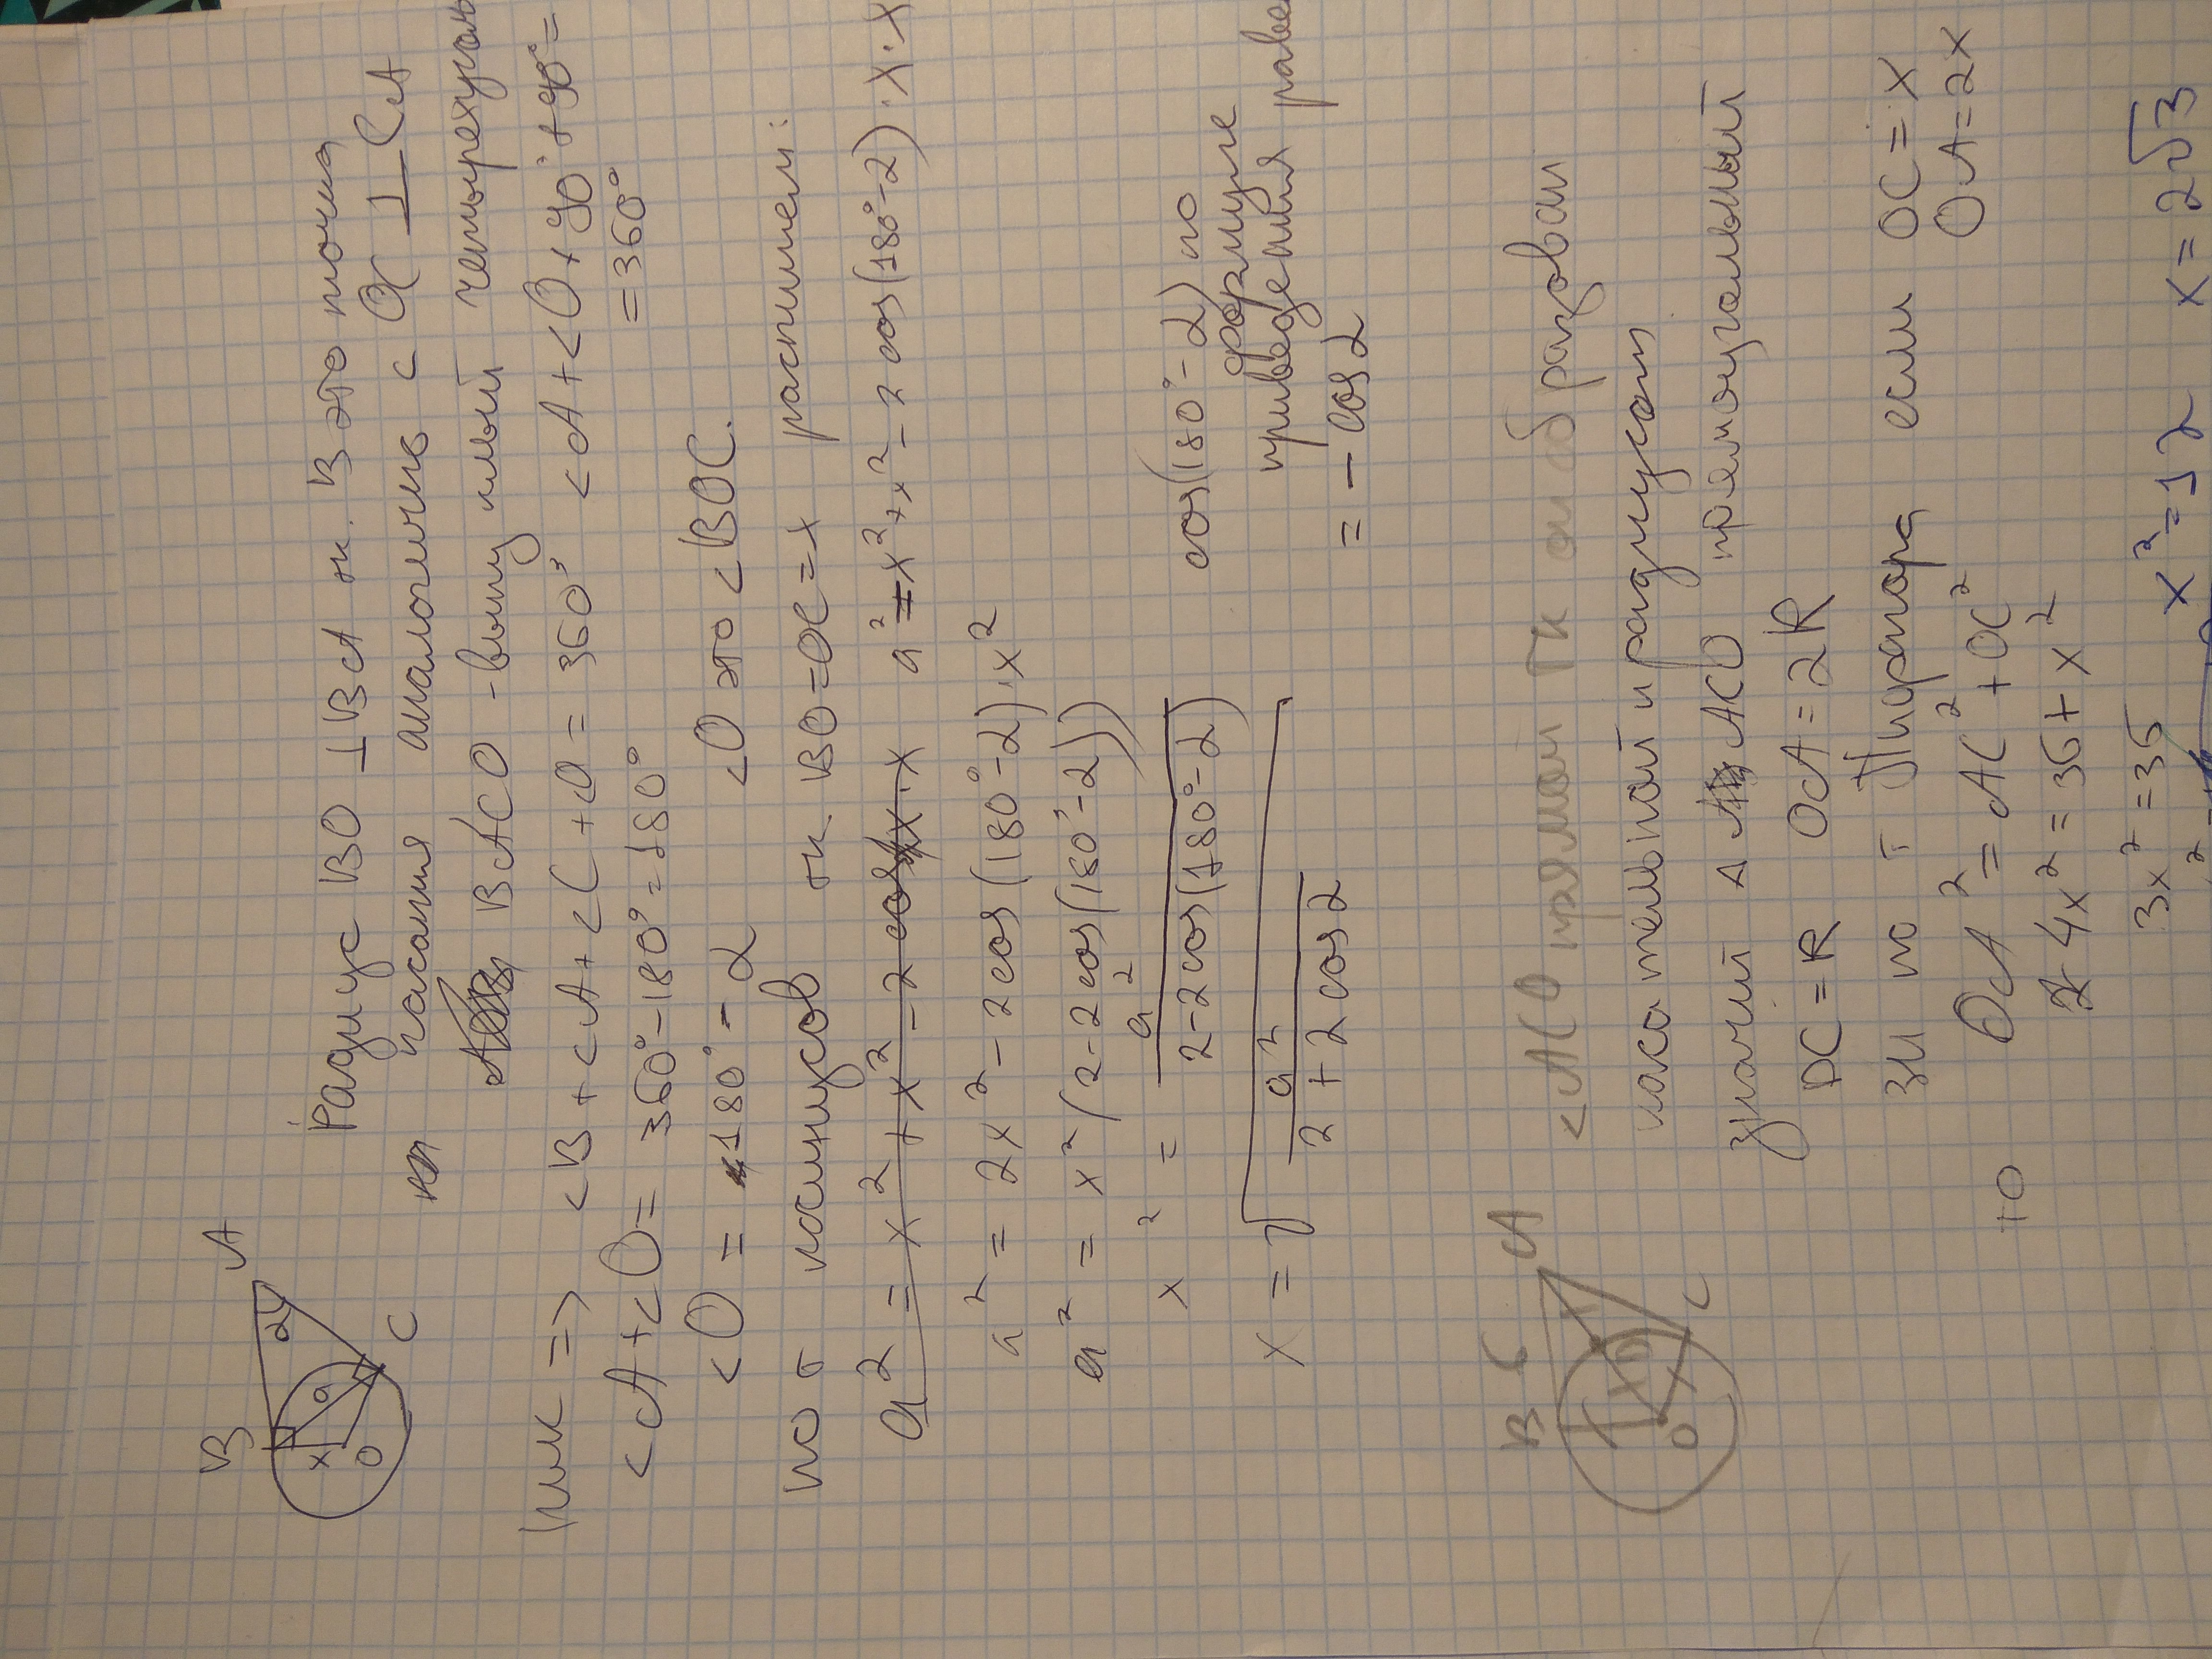 B
A
2y
x
a
O
C
Радиус BO ⊥ BA т.к. B это точка
касания аналогично с OC ⊥ CA
BACO - выпуклый четырехуголь
ник => <B + <A + <C + <O = 360° <A + <O + 90° + 90° =
= 360°
<A + <O = 360° - 180° = 180°
<O = 180° - 2 <O это <BOC.
по т косинусов т.к. BO = OC = x распишем:
a² = x² + x² - 2 cos x · x a² = x² + x² - 2 cos(180° - 2) · x · x
a² = 2x² - 2cos(180° - 2) · x²
a² = x²(2 - 2cos(180° - 2))
x² = a² / 2 - 2cos(180° - 2)
cos(180° - 2) по
формуле
приведения
= - cos 2
x = √ a² / 2 + 2cos 2
B 6 A
O
C
<ACO прямой тк он образован
касательной и радиусом
значит Δ ACO прямоугольный
OC = R OA = 2R
по т Пифагора если OC = x
OA = 2x
то OA² = AC² + OC²
4x² = 36 + x²
3x² = 36 x² = 12 x = 2√3